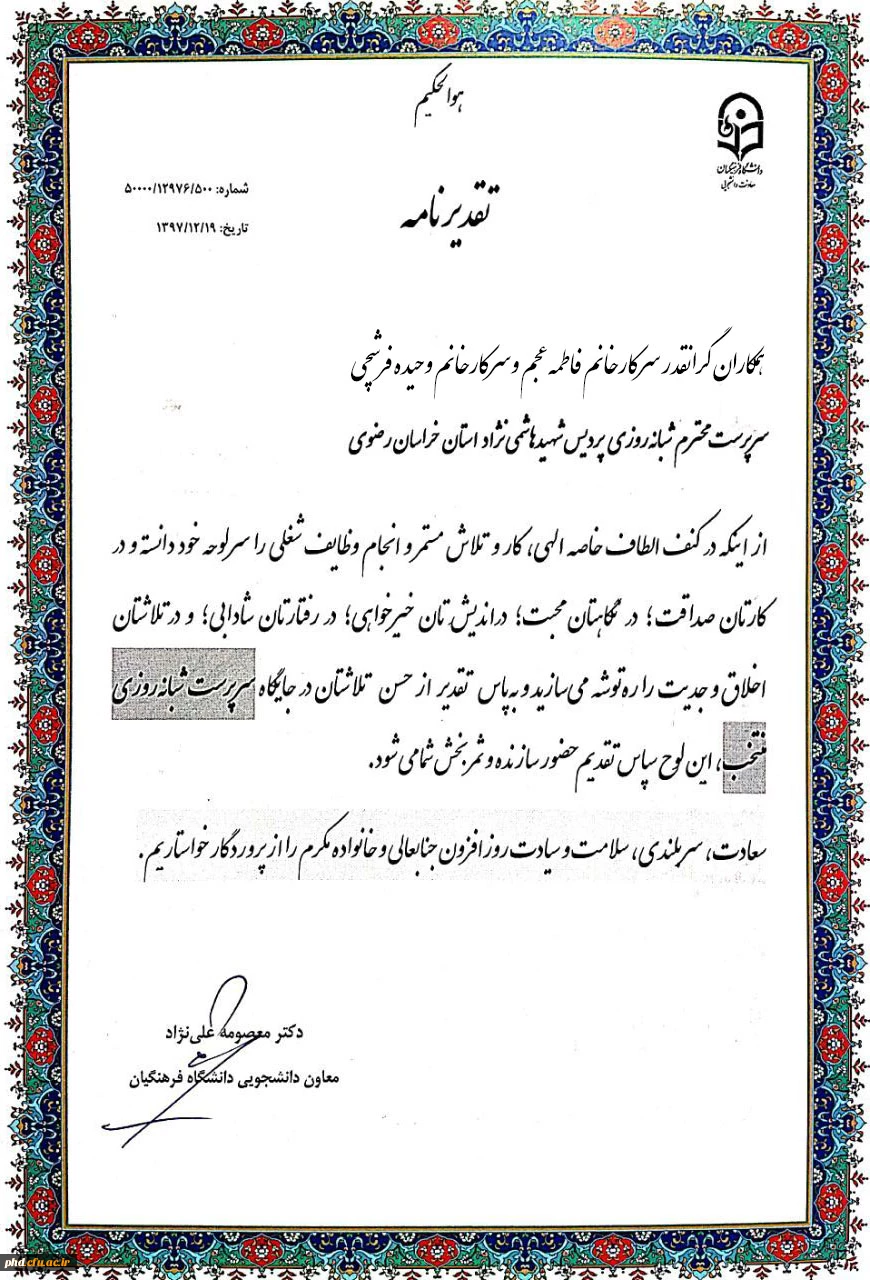 هوالحکیم
دانشگاه فرهنگیان
معاونت دانشجویی
شماره: ۵۰۰۰۰/۱۲۹۷۶/۵۰۰
تاریخ: ۱۳۹۷/۱۲/۱۹
تقدیرنامه
همکاران گرانقدر سرکارخانم فاطمه عجم و سرکارخانم وحیده فرشچی
سرپرست محترم شبانه روزی پردیس شهید هاشمی نژاد استان خراسان رضوی
از اینکه در کنف الطاف خاصه الهی، کار و تلاش مستمر و انجام وظایف شغلی را سرلوحه خود دانسته و در
کارتان صداقت؛ در نگاهتان محبت؛ در اندیش تان خیرخواهی؛ در رفتارتان شادابی؛ و در تلاشتان
اخلاق و جدیت را ره توشه می سازید و به پاس تقدیر از حسن تلاشتان در جایگاه سرپرست شبانه روزی
منتخب، این لوح سپاس تقدیم حضور سازنده و ثمربخش شما می شود.
سعادت، سربلندی، سلامت و سیادت روز افزون جنابعالی و خانواده مکرم را از پروردگار خواستاریم.
دکتر معصومه علی‌نژاد
معاون دانشجویی دانشگاه فرهنگیان
phd.cfu.ac.ir